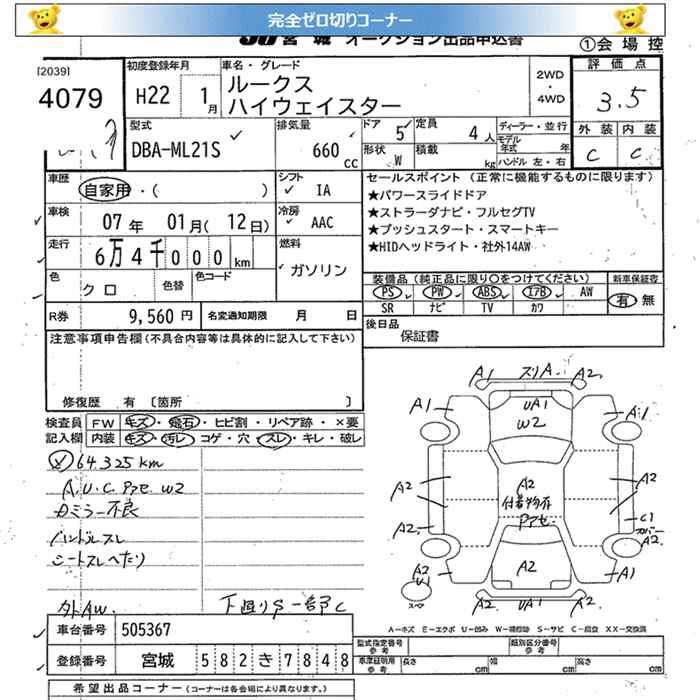 完全ゼロ切りコーナー
JU 宮城 オークション出品申込書
①会場控
[2039]
4079
初度登録年月
H22 1月
車名・グレード
ルークス
ハイウェイスター
2WD
・
4WD
評価点
3.5
外装 内装
C C
型式
DBA-ML21S
排気量
660 cc
ドア
5
定員
4人
ディーラー・並行
モデル年式 年
形状
W
積載
kg
ハンドル 左・右
車歴
自家用・( )
シフト
IA
車検
07年 01月(12日)
冷房
AAC
走行
6万4千000km
燃料
ガソリン
色
クロ
色替
色コード
R券
9,560円
名変通知期限 月 日
セールスポイント(正常に機能するものに限ります)
★パワースライドドア
★ストラーダナビ・フルセグTV
★プッシュスタート・スマートキー
★HIDヘッドライト・社外14AW
装備品(純正品に限り〇をつけてください)
PS PW ABS エアB AW
SR ナビ TV カワ
新車保証書
有 無
後日品
保証書
注意事項申告欄(不具合内容等は具体的に記入して下さい)
修復歴 有 〔箇所 〕
検査員記入欄
FW キズ・飛石・ヒビ割・リペア跡・×要
内装 キズ・汚レ・コゲ・穴・スレ・キレ・破レ
64.325km
A.U.C.アセ W2
カミラー不良
ハンドルスレ
シートスレヘたり
外AW. 下廻りS一部C
A1 スリA. A2
A1 UA1 A1
W2
A2 A2 A2
付着物有
アセ
A2 C1
カバー
A2
A2
U1 A2 A1
スペア
A2 UA1 A2
A-キズ E-エクボ U-凹み W-補修跡 S-サビ C-腐食 XX-交換済
車台番号 505367
登録番号 宮城 582き7848
型式指定番号 参考
類別区分番号 参考
車庫証明用 参考 長さ cm 幅 cm 高さ cm
希望出品コーナー(コーナーは各会場により異なります。)